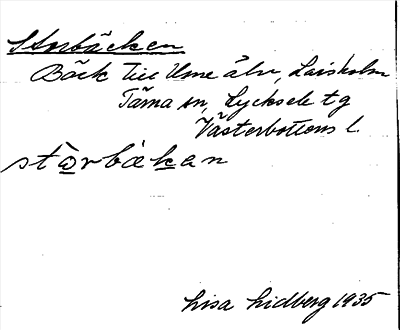 Storbäcken
Bäck till Ume älv, Laisholm
Tärna sn, Lycksele tg
Västerbottens l.
stɷrbäkan
Lisa Lidberg 1935